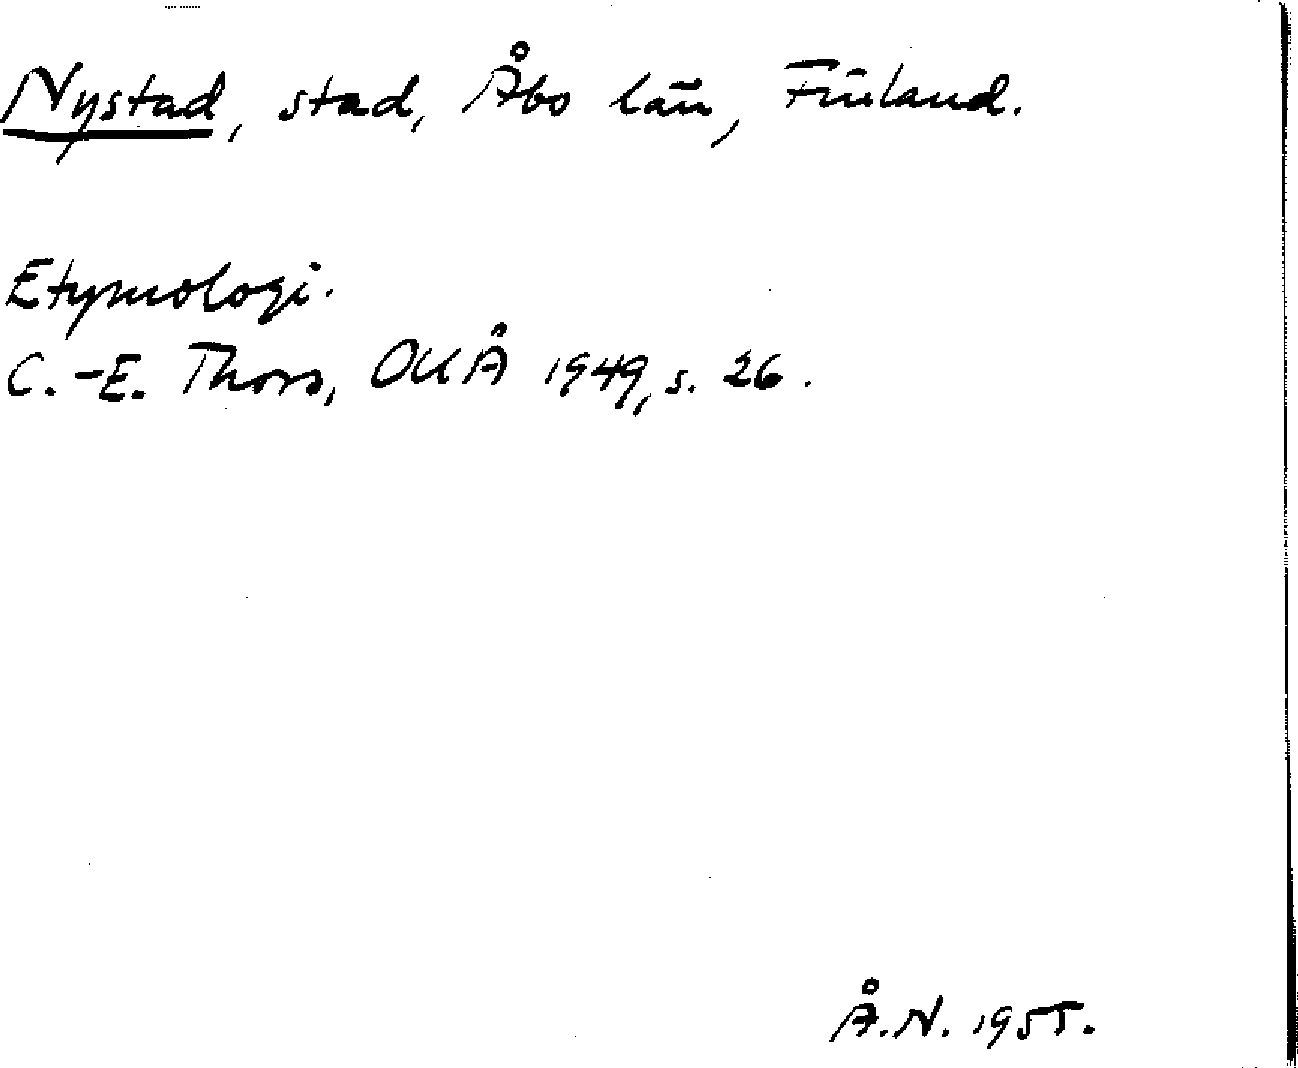 Nystad, stad, Åbo län, Finland.
Etymologi.
C.-E. Thors, OUÅ 1949, s. 26.
Å.N. 1955.